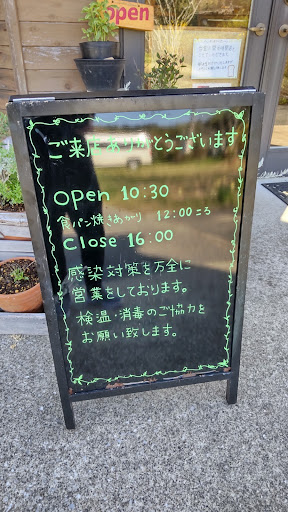 open
ご来店ありがとうございます
open 10:30
食パン焼きあがり 12:00ころ
close 16:00
感染対策を万全に
営業をしております。
検温・消毒のご協力を
お願い致します。